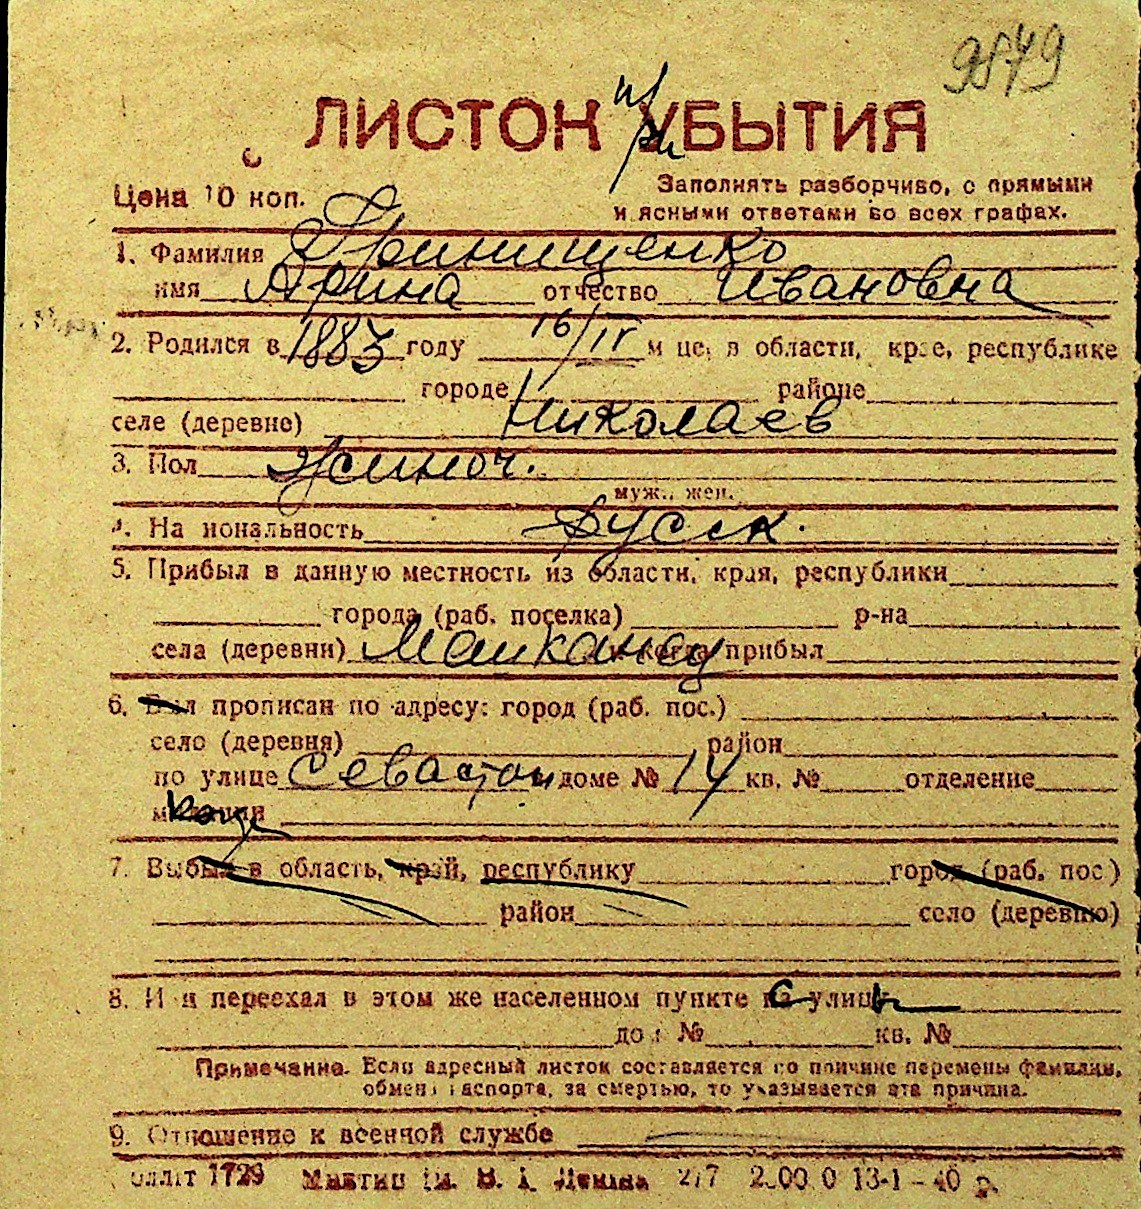 9879
ЛИСТОК УБЫТИЯ
при
Цена 10 коп.
Заполнять разборчиво, с прямыми
и ясными ответами во всех графах.
1. Фамилия Гринищенко
имя Арина отчество Ивановна
2. Родился в 1883 году 16/IV м це, в области, крае, республике
городе районе
селе (деревне) Николаев
3. Пол жиноч.
муж., жен.
4. На иональность русск.
5. Прибыл в данную местность из области, края, республики
города (раб. поселка) р-на
села (деревни) и когда прибыл
6. Был прописан по адресу: город (раб. пос.)
село (деревня) район
по улице Севастоп доме № 14 кв. № отделение
милиции
7. Выбыл в область, край, республику город (раб. пос.)
район село (деревню)
8. И и переехал в этом же населенном пункте на улицу
до № кв. №
Примечание. Если адресный листок составляется по причине перемены фамилии,
обмена паспорта, за смертью, то указывается эта причина.
9. Отношение к военной службе
1729 им. В. І. Леніна 13-1-40 р.